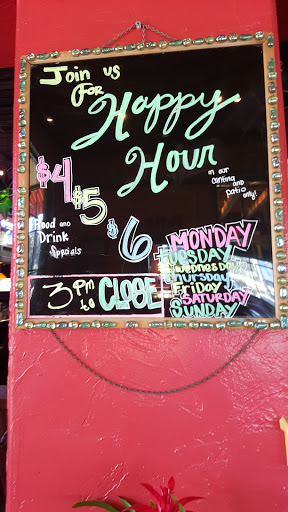 Join us
for
Happy
Hour
in our
cantina
and
patio
only!
$4
$5
$6
Food and
Drink
Specials
3pm to CLOSE
MONDAY
TUESDAY
Wednesday
Thursday
Friday
SATURDAY
SUNDAY